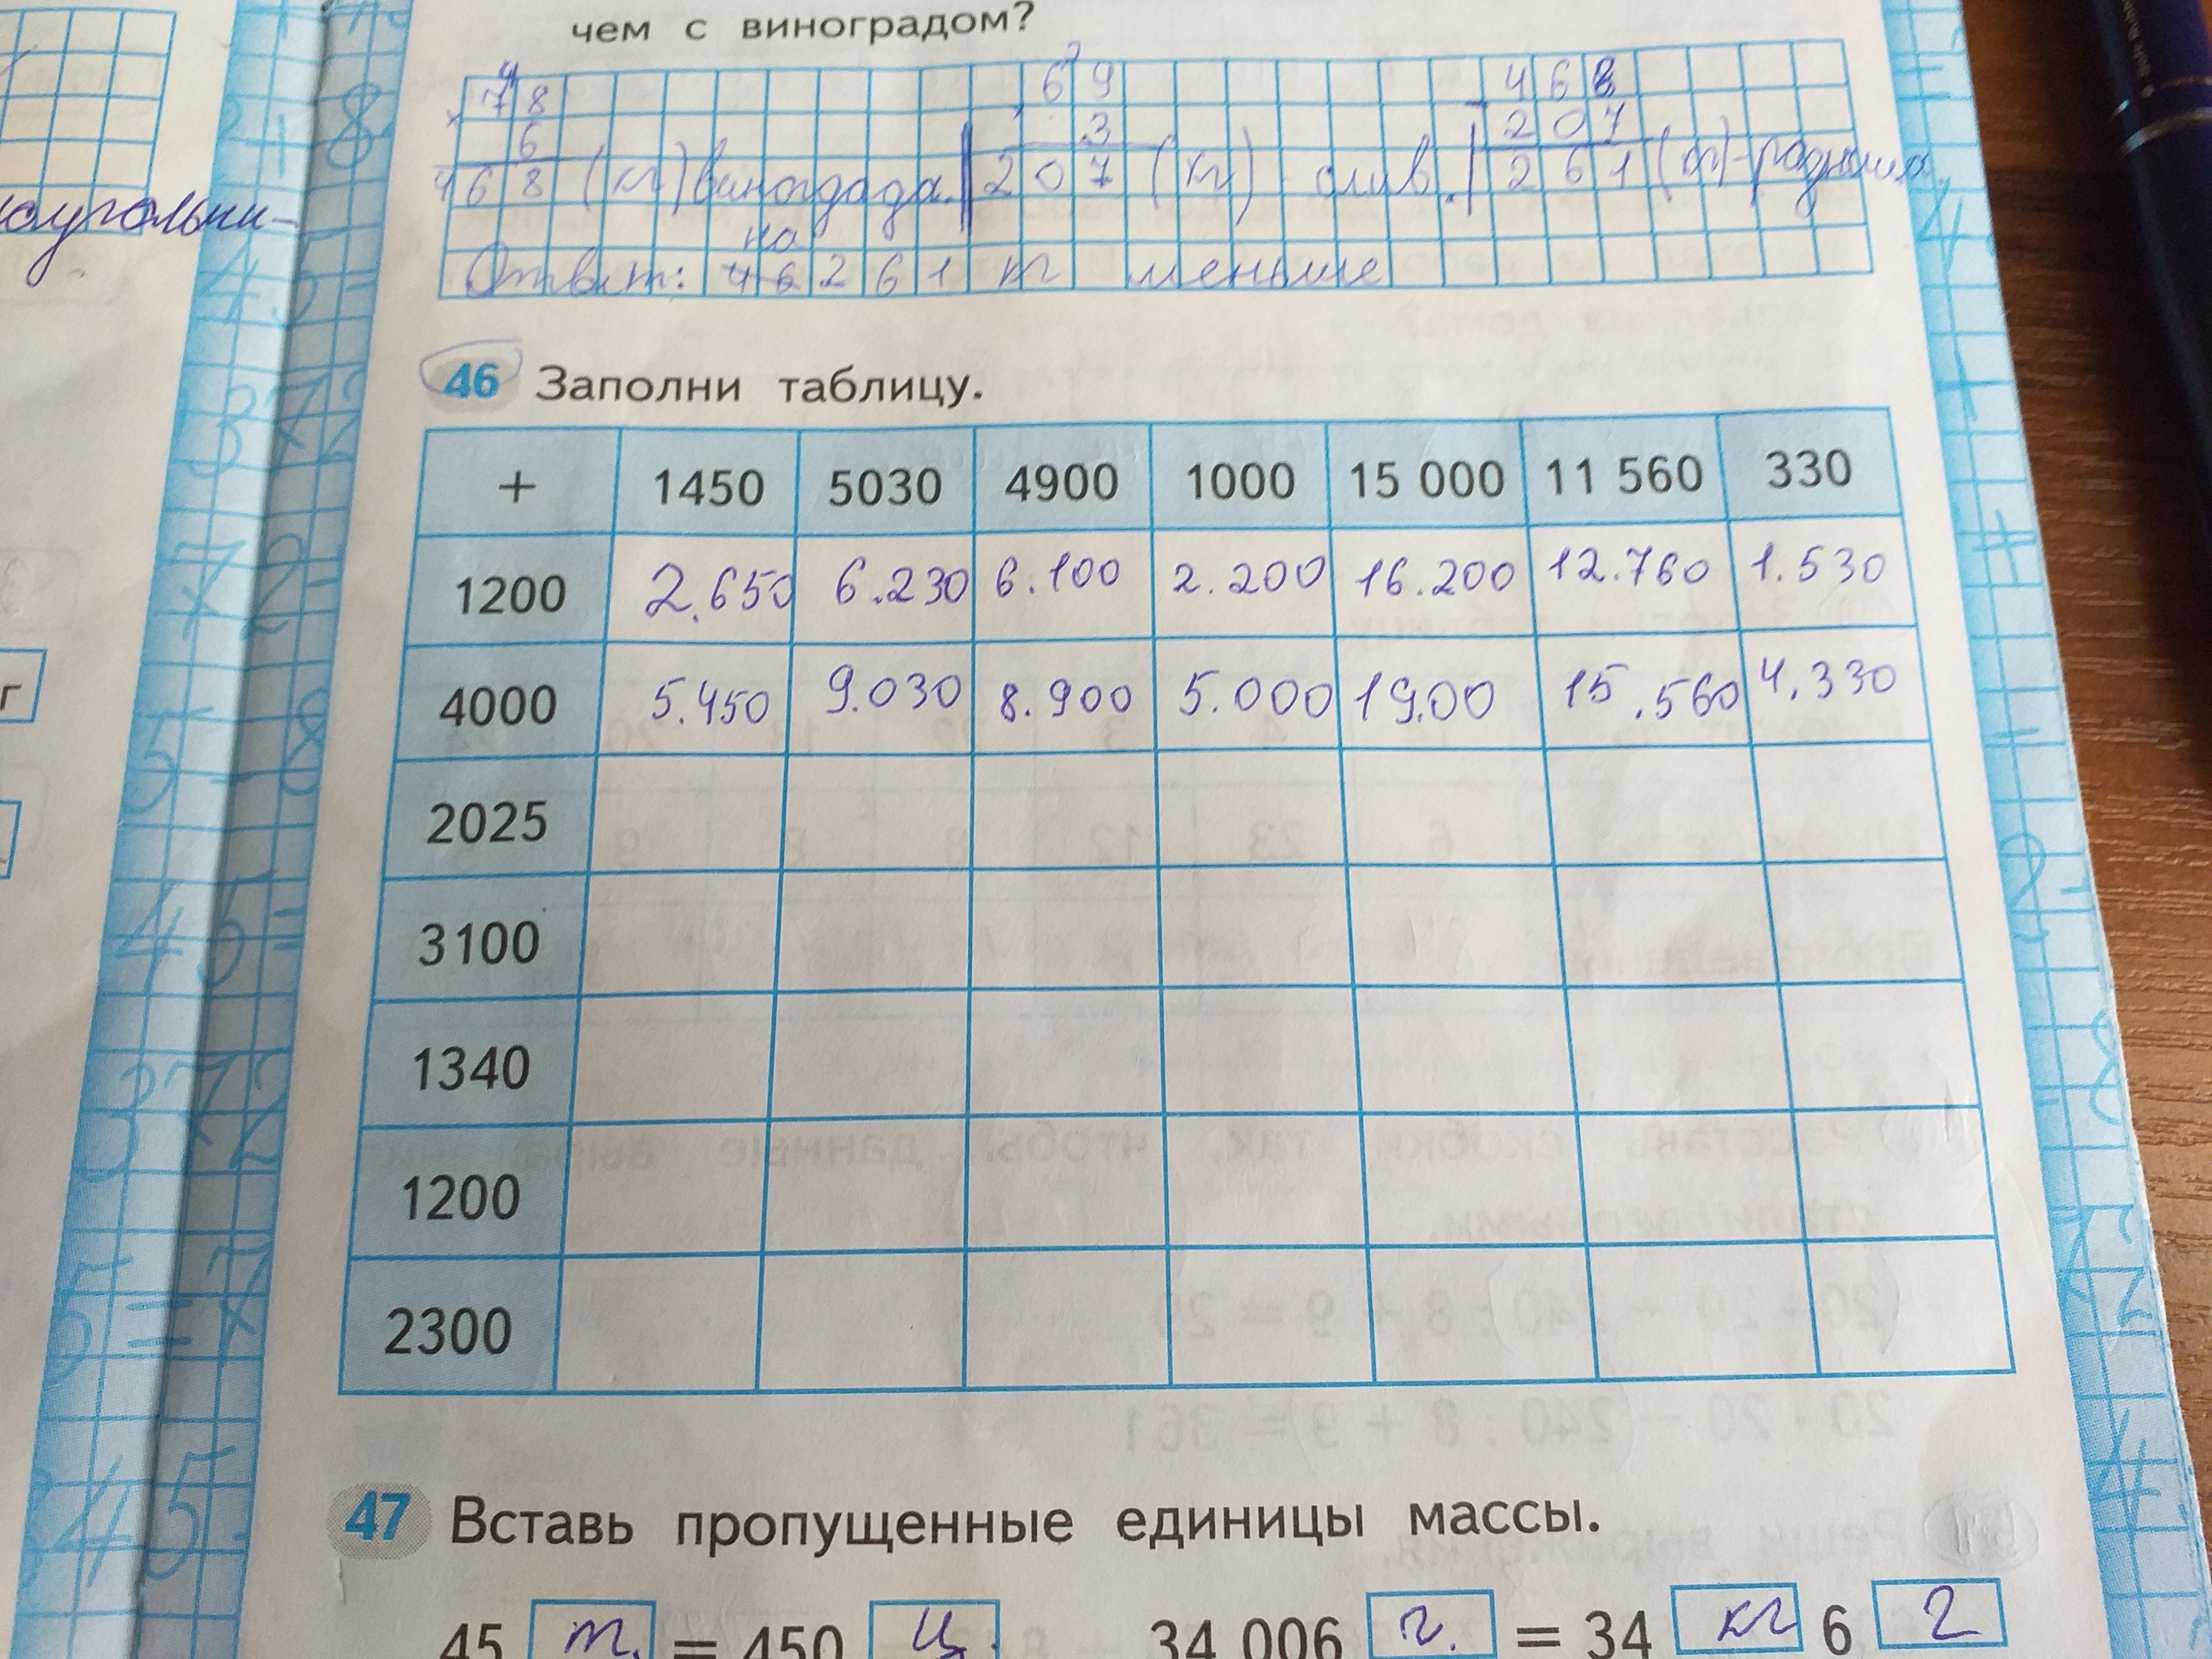 чем с виноградом?
4 7 8 6 9 4 6 8
× 6 × 3 - 2 0 7
4 6 8 (кг) винограда. 2 0 7 (кг) слив. 2 6 1 (кг)-разница
на
Ответ: 4 6 2 6 1 кг меньше
46 Заполни таблицу.
+ 1450 5030 4900 1000 15 000 11 560 330
1200 2.650 6.230 6.100 2.200 16.200 12.760 1.530
4000 5.450 9.030 8.900 5.000 19.00 15.560 4.330
2025
3100
1340
1200
2300
47 Вставь пропущенные единицы массы.
45 т. = 450 ц. 34 006 г. = 34 кг 6 г